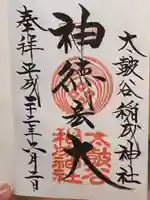 太皷谷稲成神社
神徳宏大
太皷谷
稲成神社
奉拝 平成二十二年 月 二日